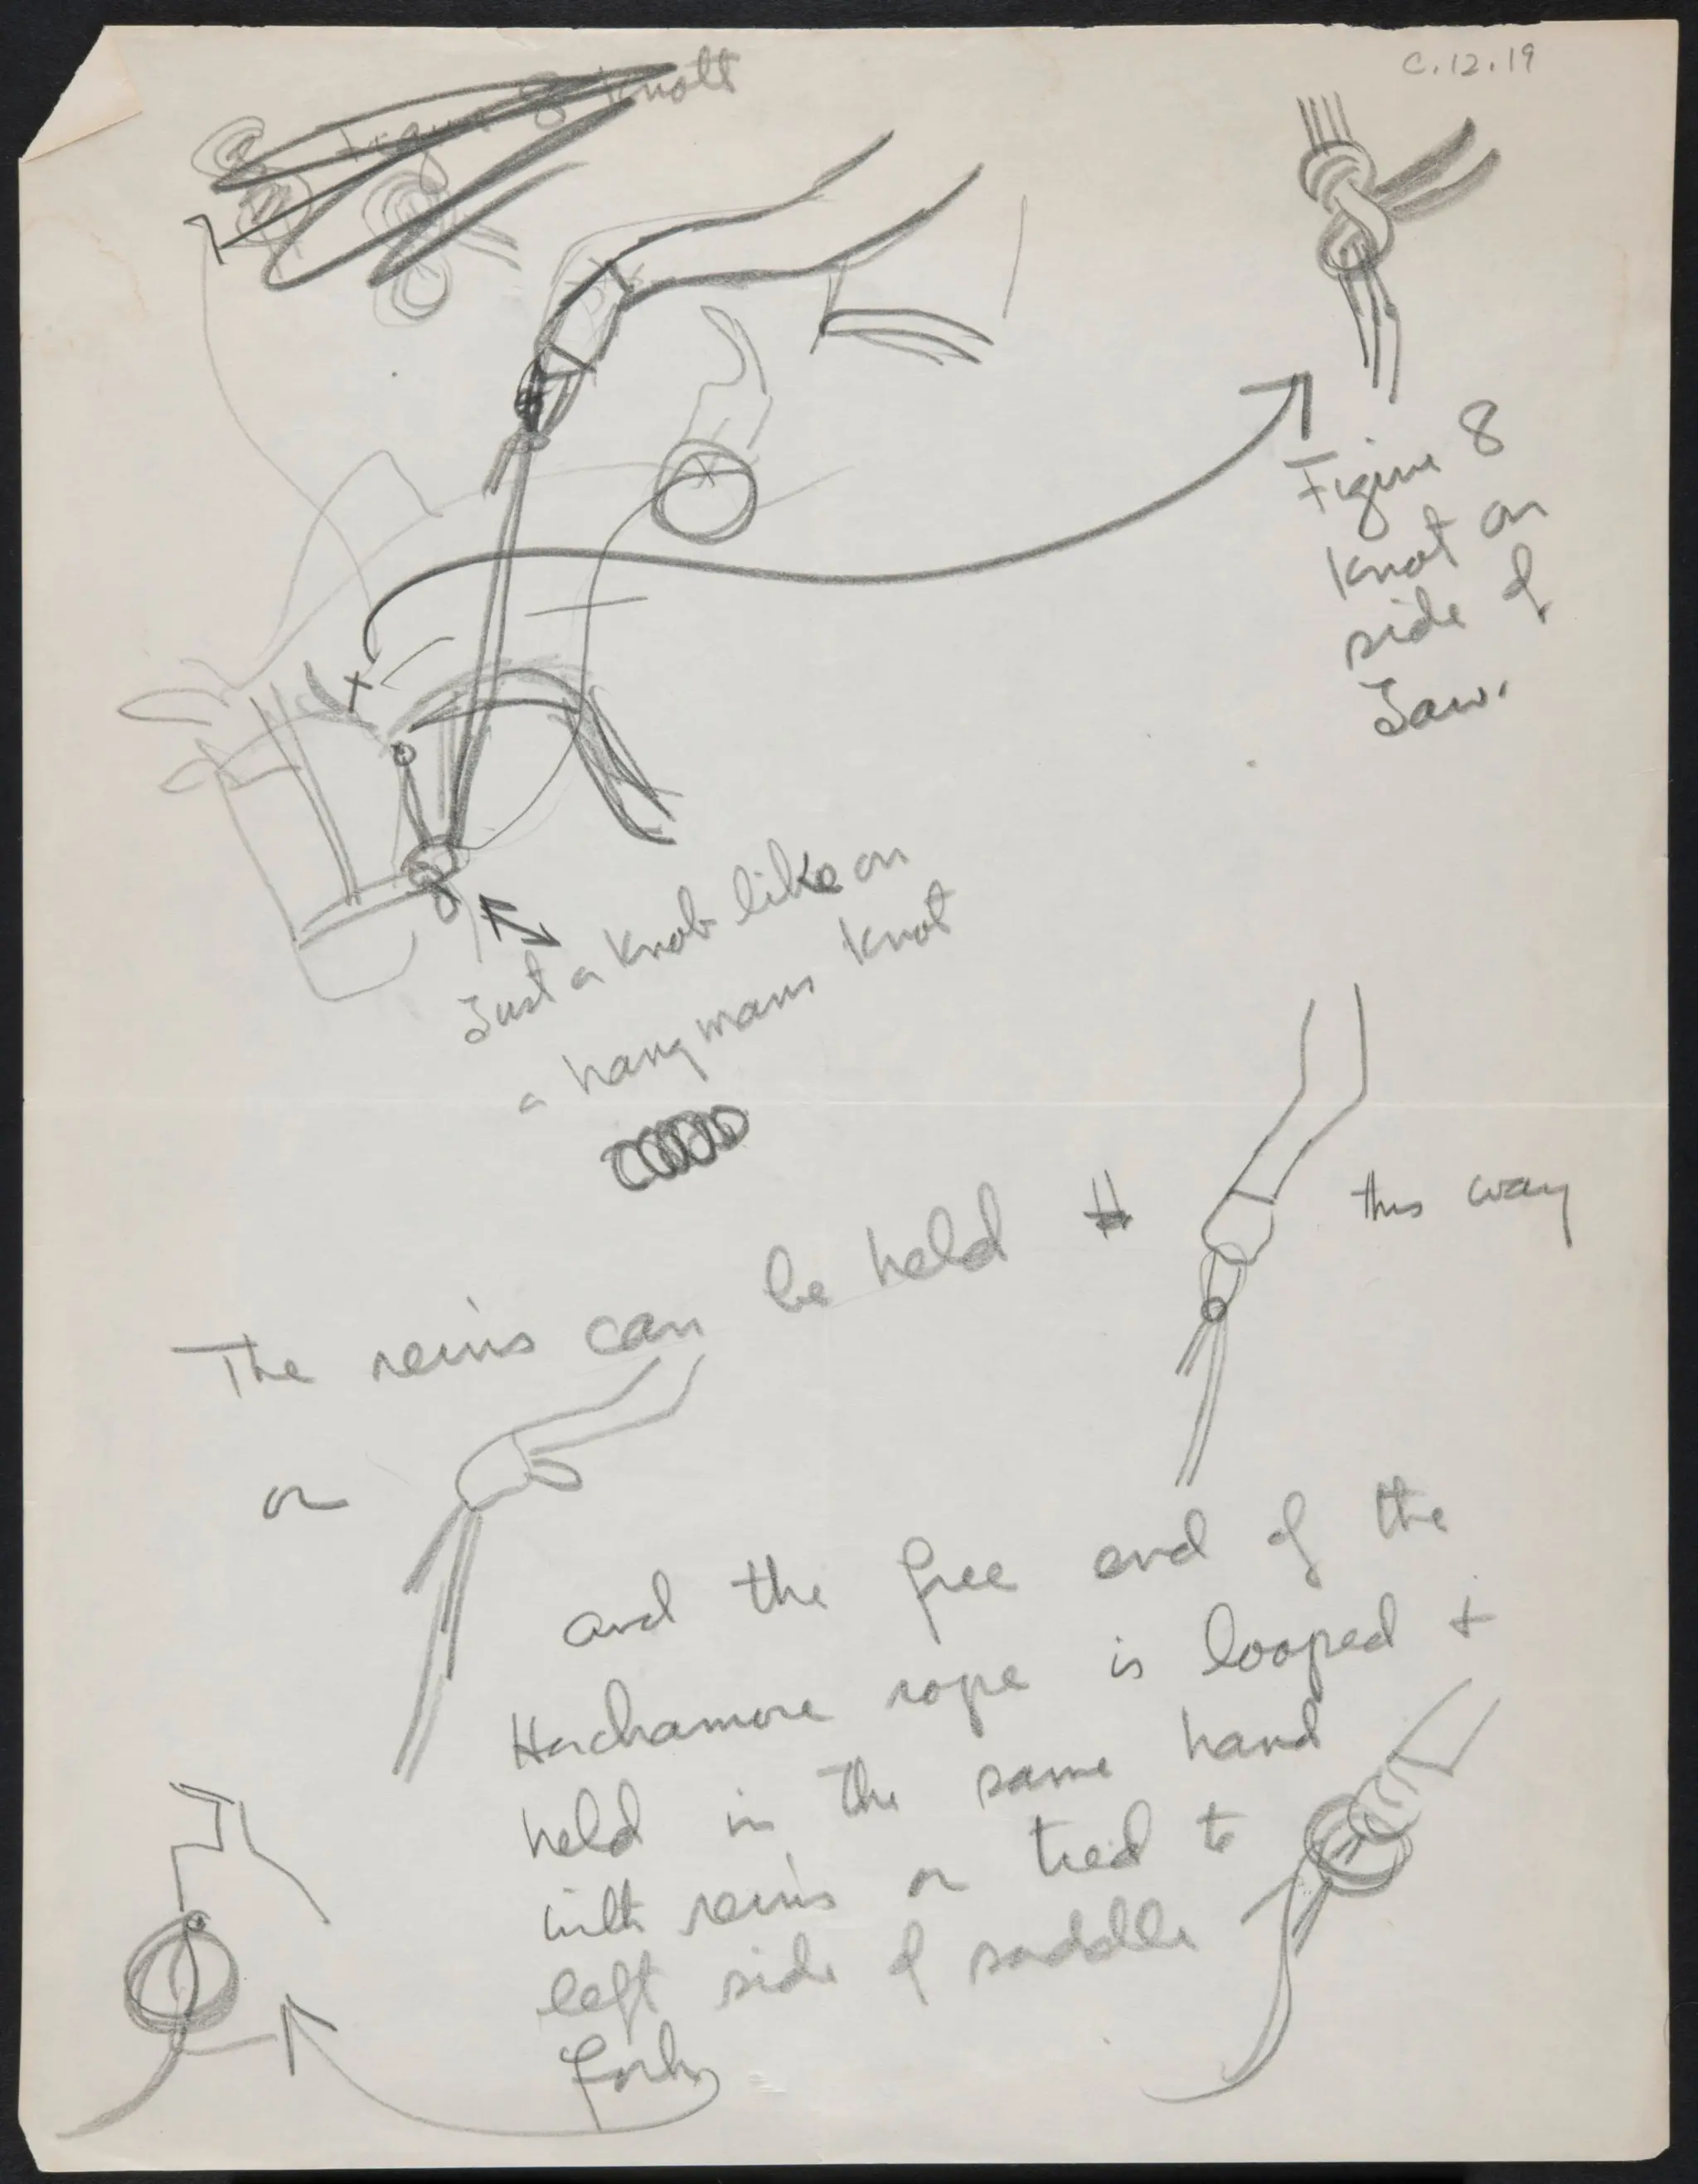 Figure 8 Knott
C.12.19
Figure 8
Knot on
side of
Jaw.
Just a Knob like on
a hangmans Knot
The reins can be held this way
or
and the free end of the
Hachamore rope is looped +
held in the same hand
with reins or tied to
left side of saddle
fork